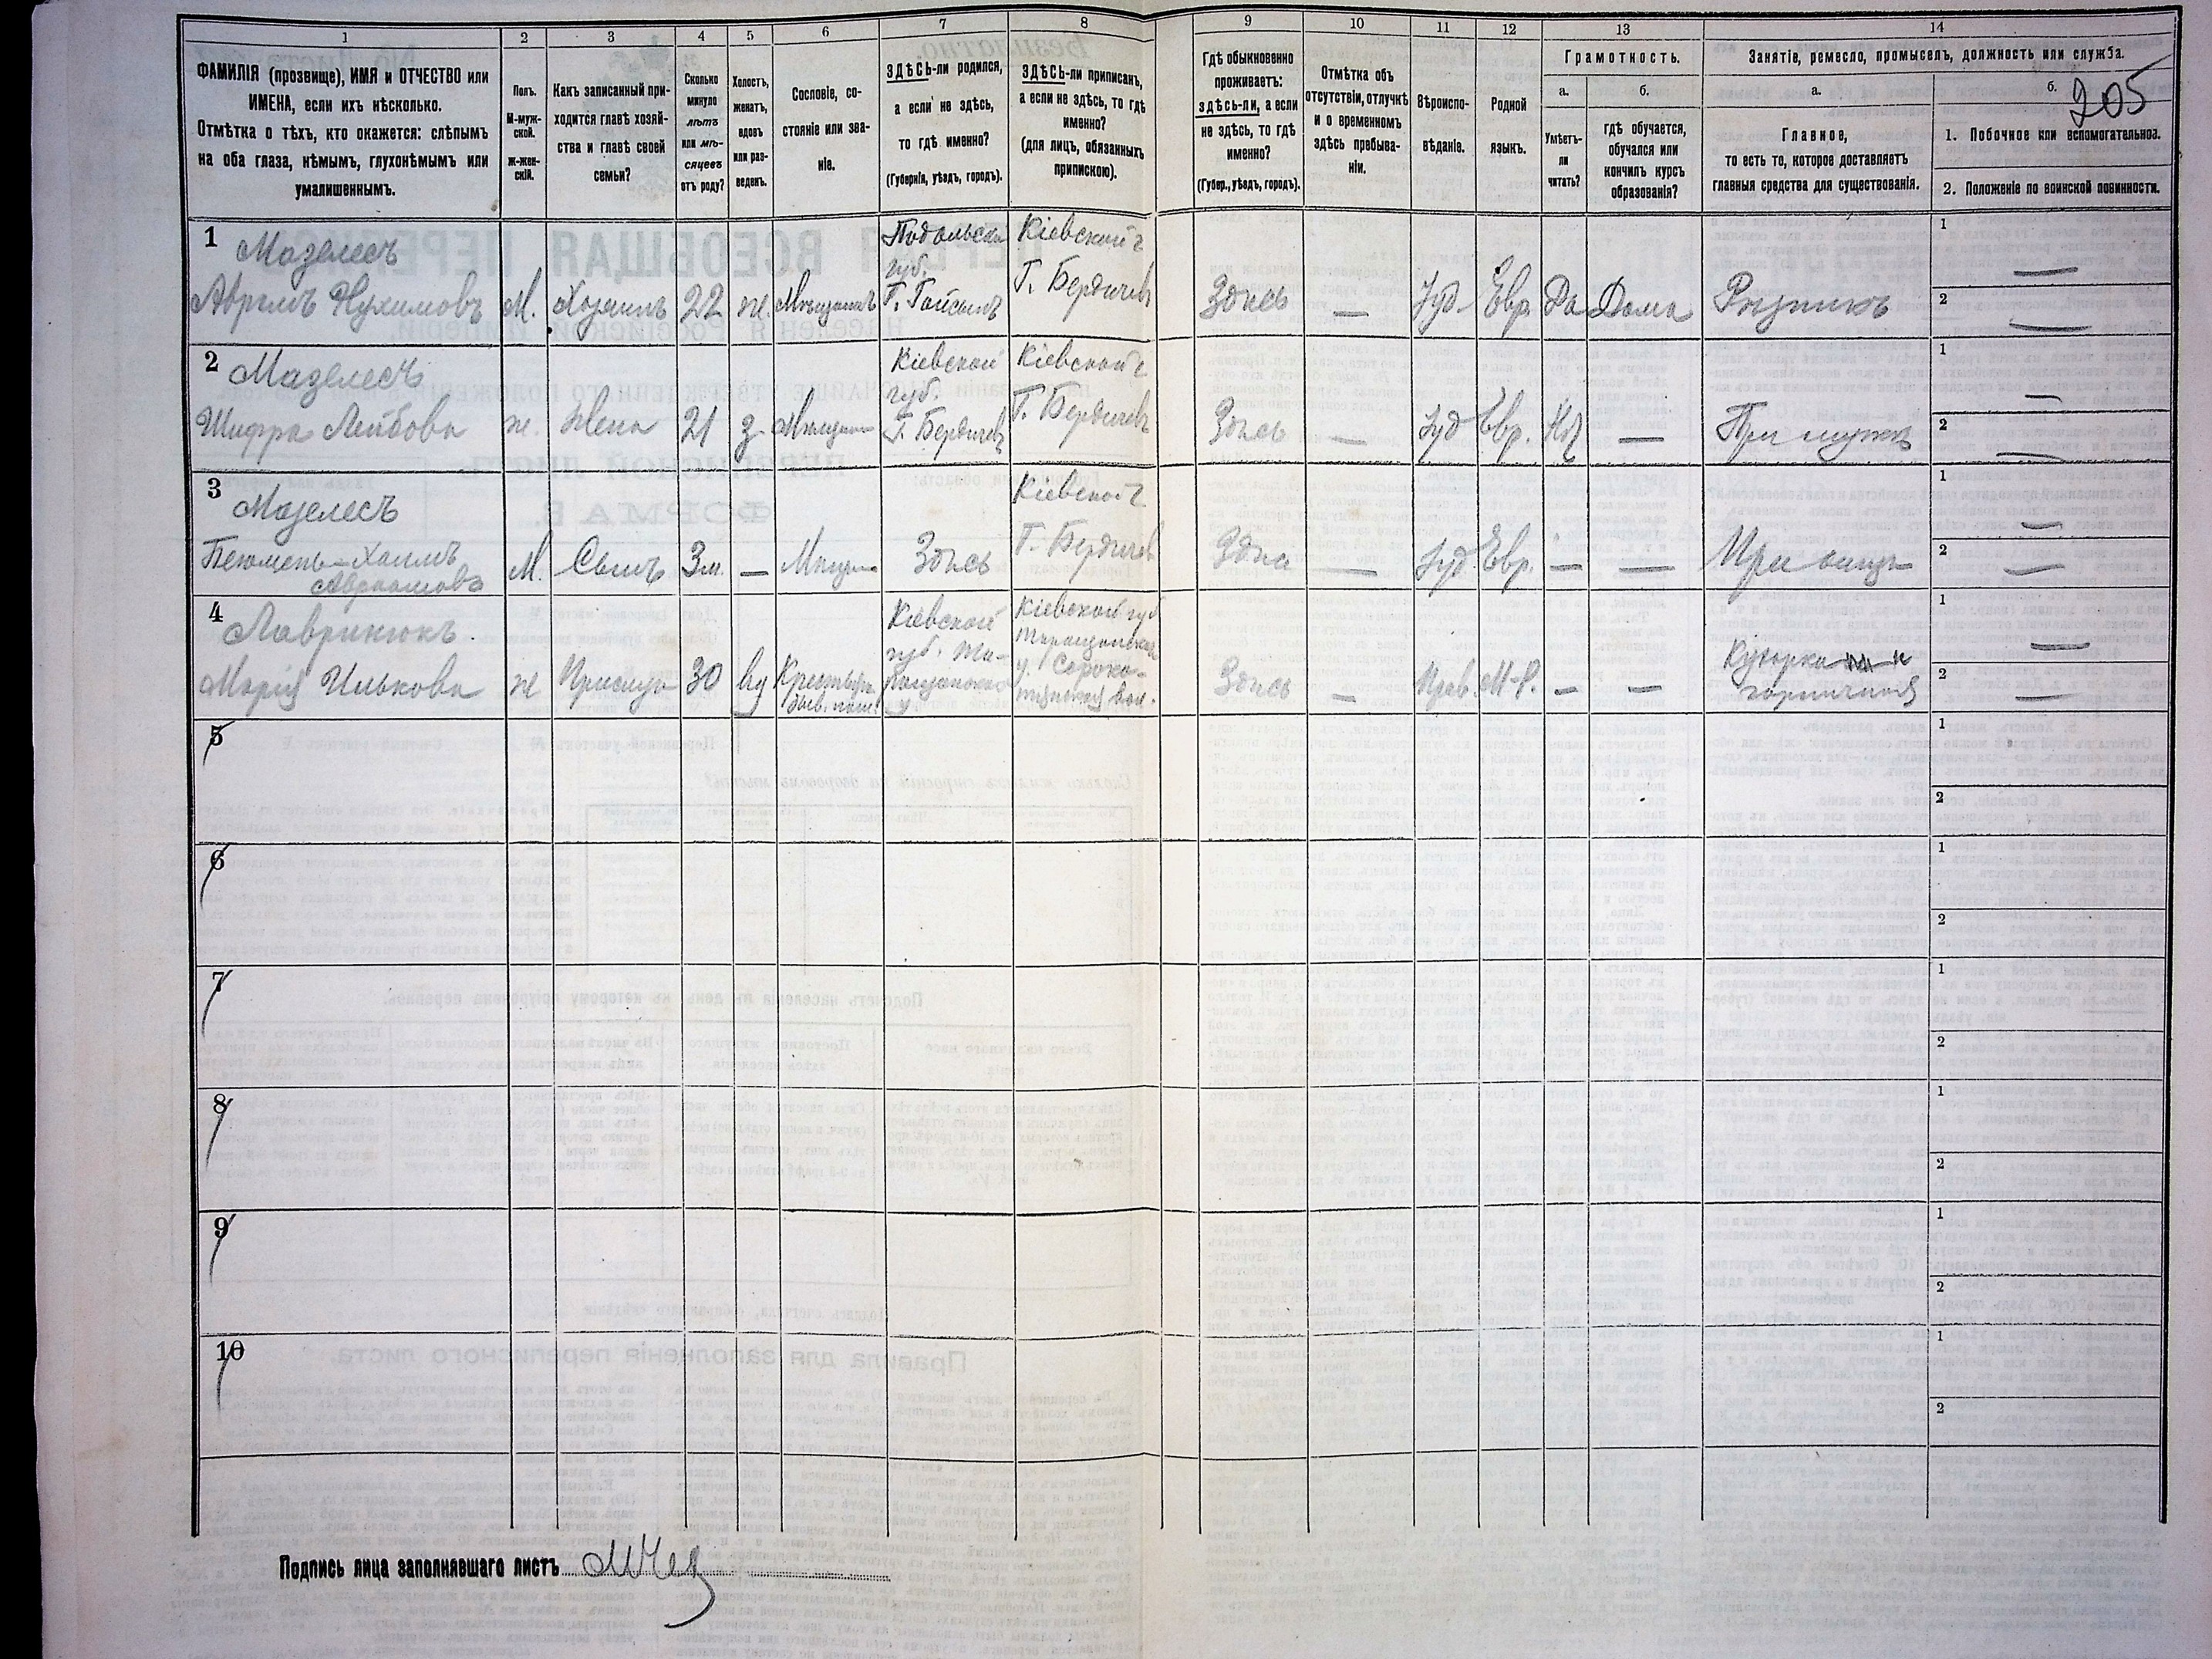 1 2 3 4 5 6 7 8 9 10 11 12 13 14
ФАМИЛІЯ (прозвище), ИМЯ и ОТЧЕСТВО или
ИМЕНА, если ихъ нѣсколько.
Отмѣтка о тѣхъ, кто окажется: слѣпымъ
на оба глаза, нѣмымъ, глухонѣмымъ или
умалишеннымъ.
Полъ.
М-муж-
ской.
ж-жен-
скій.
Какъ записанный при-
ходится главѣ хозяй-
ства и главѣ своей
семьи?
Сколько
минуло
лѣтъ
или мѣ-
сяцевъ
отъ роду?
Холостъ,
женатъ,
вдовъ
или раз-
веденъ.
Сословіе, со-
стояніе или зва-
ніе.
ЗДѢСЬ-ли родился,
а если не здѣсь,
то гдѣ именно?
(Губернія, уѣздъ, городъ).
ЗДѢСЬ-ли приписанъ,
а если не здѣсь, то гдѣ
именно?
(для лицъ, обязанныхъ
припискою).
Гдѣ обыкновенно
проживаетъ:
здѣсь-ли, а если
не здѣсь, то гдѣ
именно?
(Губер., уѣздъ, городъ).
Отмѣтка объ
отсутствіи, отлучкѣ
и о временномъ
здѣсь пребыва-
ніи.
Вѣроиспо-
вѣданіе.
Родной
языкъ.
Грамотность.
а.
Умѣетъ-
ли
читать?
б.
гдѣ обучается,
обучался или
кончилъ курсъ
образованія?
Занятіе, ремесло, промыселъ, должность или служба.
а.
Главное,
то есть то, которое доставляетъ
главныя средства для существованія.
б.
205
1. Побочное или вспомогательное.
2. Положеніе по воинской повинности.
1
Мазелесъ
Аврамъ Нухимовъ М. Хозяинъ 22 ж. Мѣщанинъ
Подольска
губ.
Г. Гайсинъ
Кіевской г
Г. Бердичевъ
Здѣсь — Іуд Евр. Да Дома Рѣзникъ
1 —
2 —
2
Мазелесъ
Шифра Лейбова ж. Жена 21 з.
Кіевской
губ.
Г. Бердичевъ
Кіевской г
Г. Бердичевъ
Здѣсь — Іуд Евр. Нѣт — При мужѣ
1 —
2 —
3
Мазелесъ
Хаимъ
Аврамовъ
М. Сынъ 3м. —
Здѣсь
Кіевской г
Г. Бердичев
Здѣсь — Іуд Евр. — — При отцѣ
1 —
2 —
4
Лаврикюкъ.
Марія Илькова ж Прислуга 30 вд
Кіевской
губ.
Кіевской губ
Таращанскаго
у.
Здѣсь — Прав. М-Р. — —
Кухарка и
горничная
1 —
2 —
5
1
2
6
1
2
7
1
2
8
1
2
9
1
2
10
1
2
Подпись лица заполнявшаго листъ